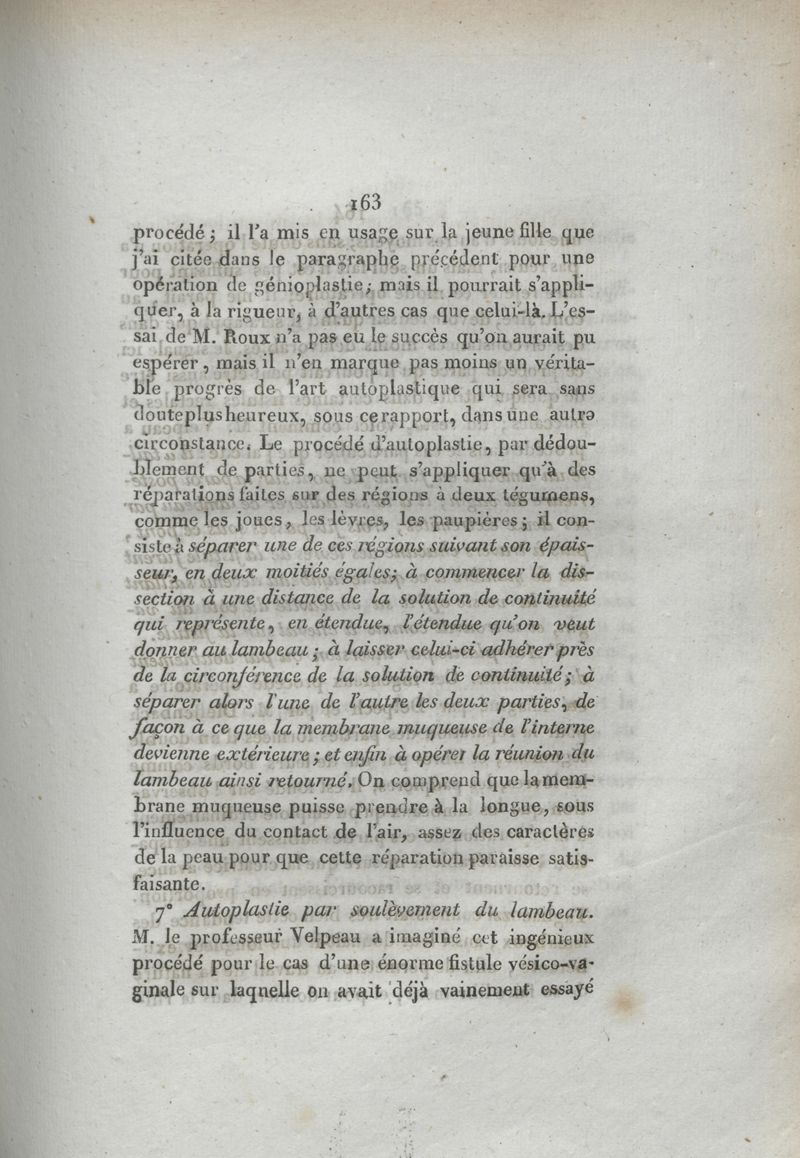 163
procédé ; il l'a mis en usage sur la jeune fille que
j'ai citée dans le paragraphe précédent pour une
opération de génioplastie ; mais il pourrait s'appli-
quer, à la rigueur, à d'autres cas que celui-là. L'es-
sai de M. Roux n'a pas eu le succès qu'on aurait pu
espérer, mais il n'en marque pas moins un vérita-
ble progrès de l'art autoplastique qui sera sans
douteplusheureux, sous cerapport, dans une autre
circonstance. Le procédé d'autoplastie, par dédou-
blement de parties, ne peut s'appliquer qu'à des
réparations faites sur des régions à deux tégumens,
comme les joues, les lèvres, les paupières ; il con-
siste à séparer une de ces régions suivant son épais-
seur, en deux moitiés égales; à commencer la dis-
section à une distance de la solution de continuité
qui représente, en étendue, l'étendue qu'on veut
donner au lambeau ; à laisser celui-ci adhérer près
de la circonférence de la solution de continuité ; à
séparer alors l'une de l'autre les deux parties, de
façon à ce que la membrane muqueuse de l'interne
devienne extérieure ; et enfin à opérer la réunion du
lambeau ainsi retourné. On comprend que la mem-
brane muqueuse puisse prendre à la longue, sous
l'influence du contact de l'air, assez des caractères
de la peau pour que cette réparation paraisse satis-
faisante.
7° Autoplastie par soulèvement du lambeau.
M. le professeur Velpeau a imaginé cet ingénieux
procédé pour le cas d'une énorme fistule vésico-va-
ginale sur laquelle on avait déjà vainement essayé